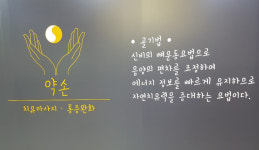 약손
치유마사지 · 통증완화
* 골기법 *
신비의 매운동요법으로
음양의 편차를 조정하여
에너지 정보를 빠르게 유지하므로
자연치유력을 증대하는 요법이다.